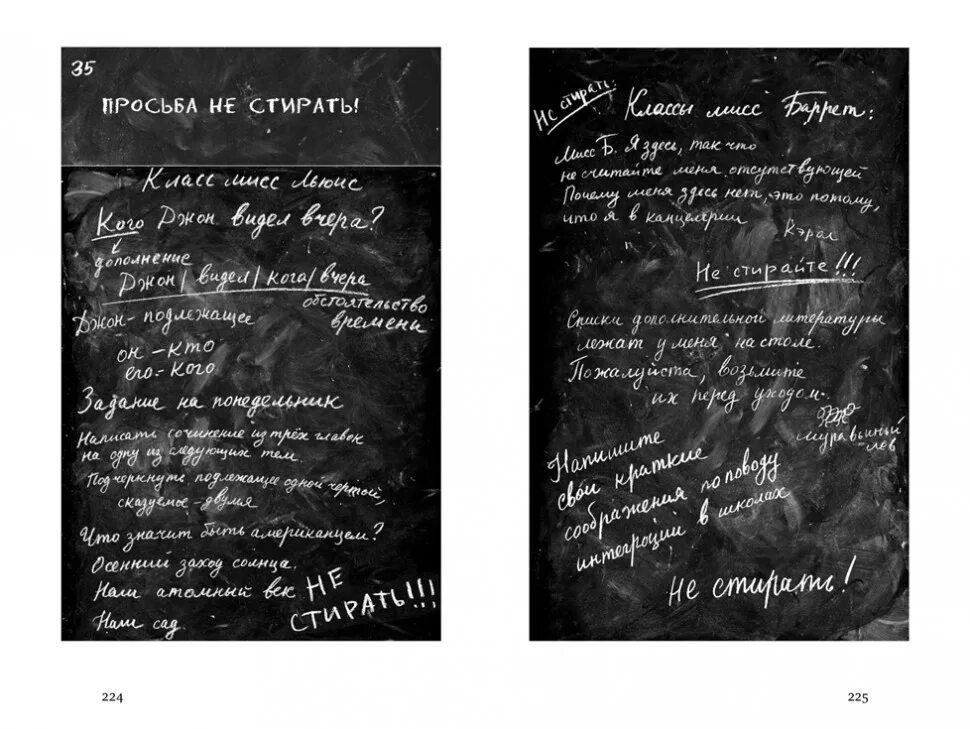 35
ПРОСЬБА НЕ СТИРАТЬ!
Класс мисс Льюис
Кого Джон видел вчера?
дополнение
Джон / видел / кого / вчера
обстоятельство
времени
Джон - подлежащее
он - кто
его - кого
Задание на понедельник
Написать сочинение из трёх главок
на одну из следующих тем.
Подчеркнуть подлежащее одной чертой,
сказуемое - двумя
Что значит быть американцем?
Осенний заход солнца.
Наш атомный век
НЕ
СТИРАТЬ!!!
Наш сад
224
Не стирать!
Классы мисс Баррет:
Мисс Б. Я здесь, так что
не считайте меня отсутствующей
Почему меня здесь нет, это потому,
что я в канцелярии
Кэрол
Не стирайте!!!
Списки дополнительной литературы
лежат у меня на столе.
Пожалуйста, возьмите
их перед уходом.
муравьиный
лев
Напишите
свои краткие
соображения по поводу
интеграции в школах
Не стирать!
225